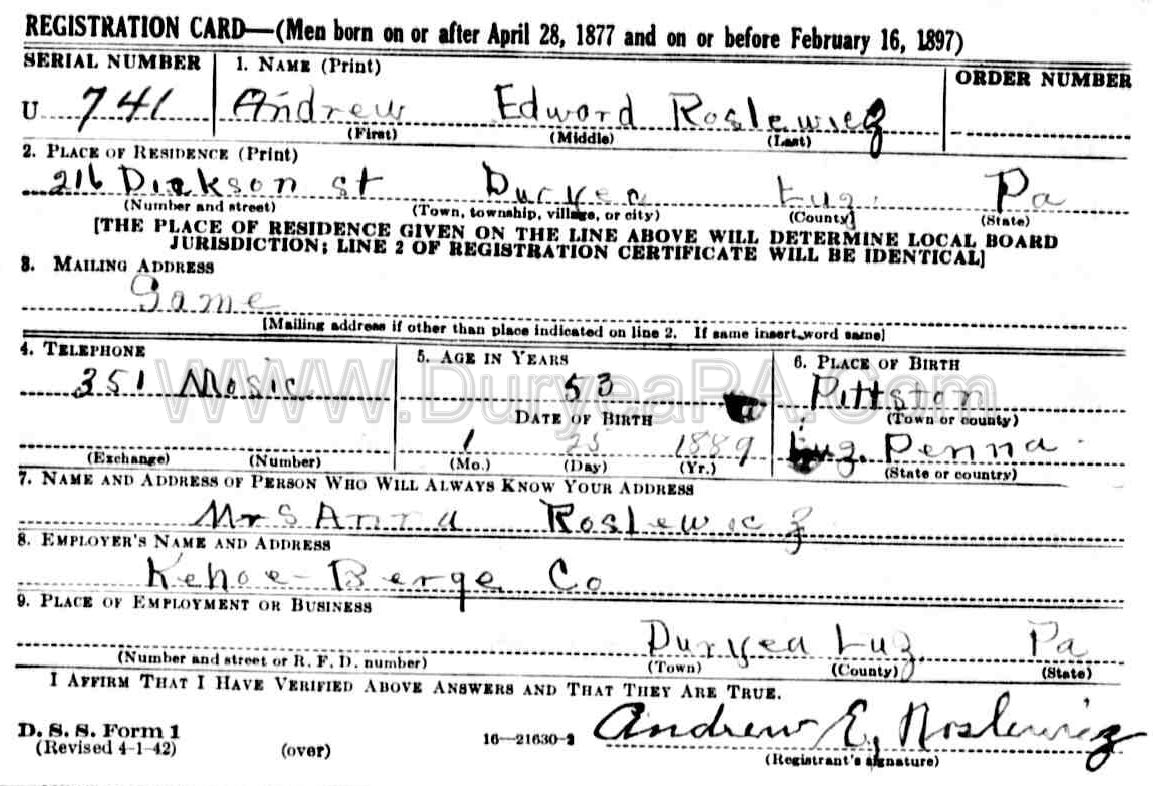 REGISTRATION CARD—(Men born on or after April 28, 1877 and on or before February 16, 1897)
SERIAL NUMBER 1. NAME (Print) ORDER NUMBER
U 741 Andrew Edward Roslewicz
(First) (Middle) (Last)
2. PLACE OF RESIDENCE (Print)
216 Dickson st Duryea Luz. Pa
(Number and street) (Town, township, village, or city) (County) (State)
[THE PLACE OF RESIDENCE GIVEN ON THE LINE ABOVE WILL DETERMINE LOCAL BOARD
JURISDICTION; LINE 2 OF REGISTRATION CERTIFICATE WILL BE IDENTICAL]
3. MAILING ADDRESS
Same
[Mailing address if other than place indicated on line 2. If same insert word same]
4. TELEPHONE 5. AGE IN YEARS 6. PLACE OF BIRTH
351 Mosic 53 Pittston
WWW.DuryeaPA.Com
DATE OF BIRTH (Town or county)
1 25 1889 Luz. Penna.
(Exchange) (Number) (Mo.) (Day) (Yr.) (State or country)
7. NAME AND ADDRESS OF PERSON WHO WILL ALWAYS KNOW YOUR ADDRESS
Mrs Anna Roslewicz
8. EMPLOYER'S NAME AND ADDRESS
Kehoe-Berge Co
9. PLACE OF EMPLOYMENT OR BUSINESS
Duryea Luz Pa
(Number and street or R. F. D. number) (Town) (County) (State)
I AFFIRM THAT I HAVE VERIFIED ABOVE ANSWERS AND THAT THEY ARE TRUE.
D. S. S. Form 1
(Revised 4-1-42) (over) 16—21630-2 Andrew E, Roslewicz
(Registrant's signature)